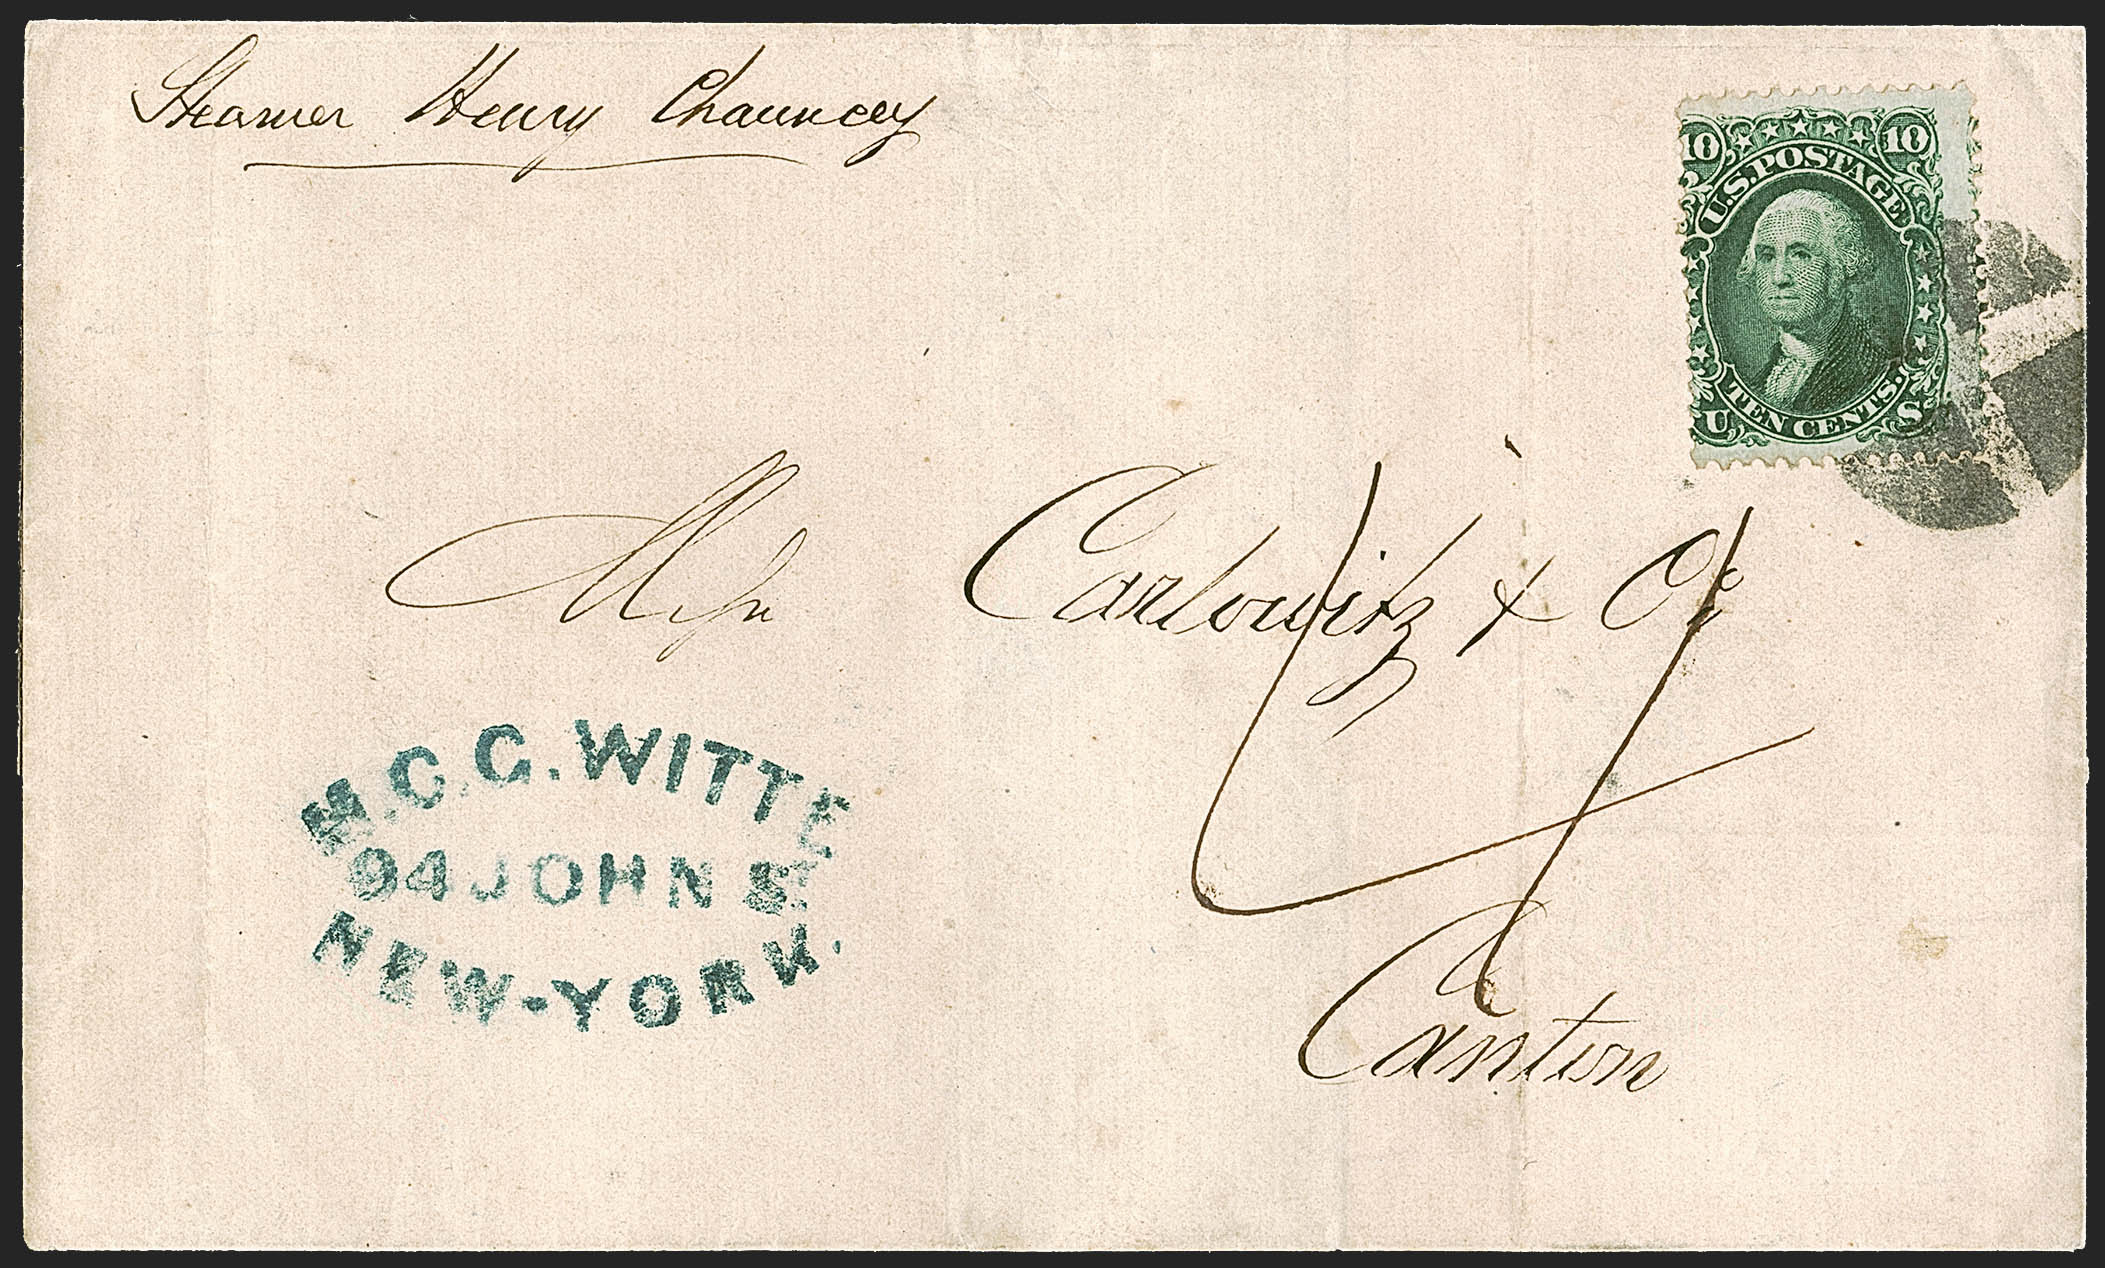 Steamer Henry Chauncey
10 10
U.S. POSTAGE
TEN CENTS.
U S
Messrs Carlowitz & Co
M.C.G. WITTE
94 JOHN ST
NEW-YORK.
Canton